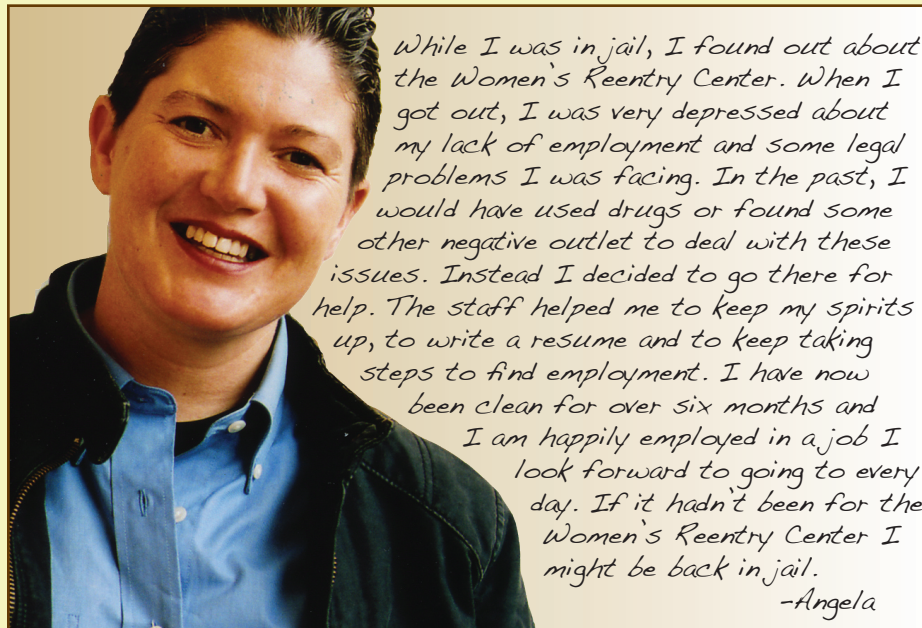 While I was in jail, I found out about
the Women's Reentry Center. When I
got out, I was very depressed about
my lack of employment and some legal
problems I was facing. In the past, I
would have used drugs or found some
other negative outlet to deal with these
issues. Instead I decided to go there for
help. The staff helped me to keep my spirits
up, to write a resume and to keep taking
steps to find employment. I have now
been clean for over six months and
I am happily employed in a job I
look forward to going to every
day. If it hadn't been for the
Women's Reentry Center I
might be back in jail.
-Angela